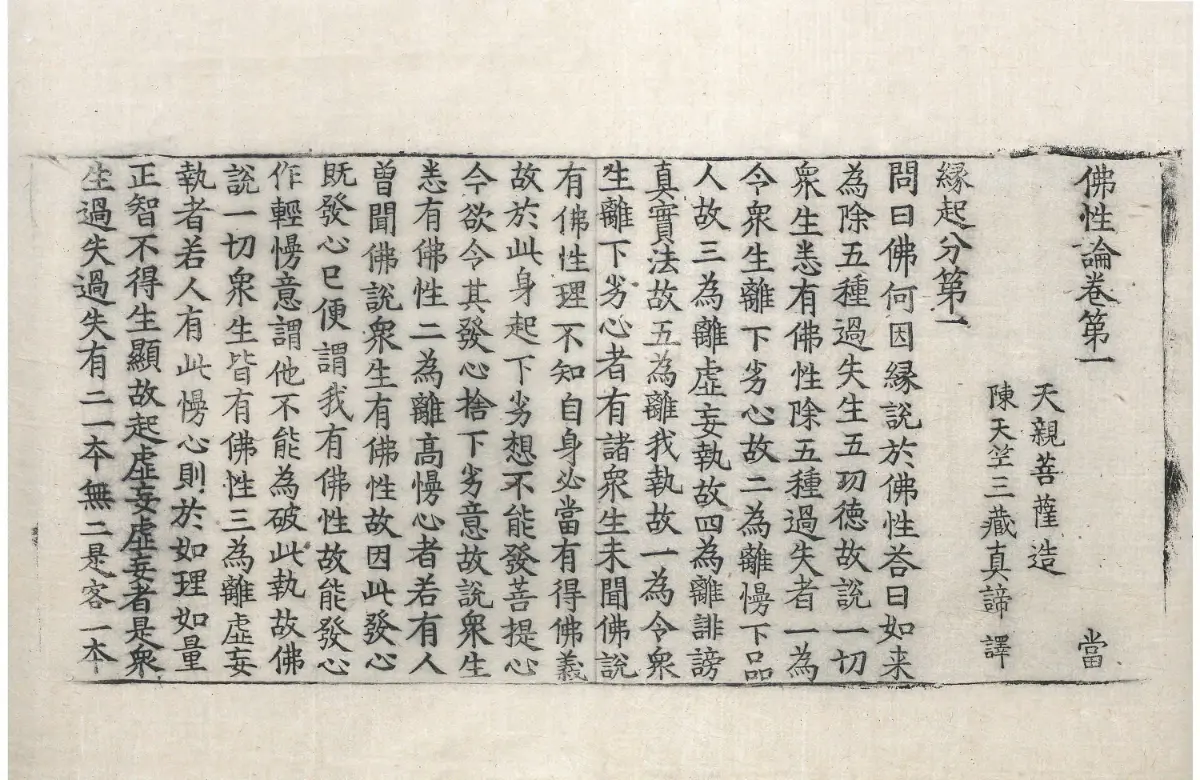 佛性論卷第一　當
天親菩薩造
陳天竺三藏真諦譯
縁起分第一
問曰佛何因縁說於佛性荅曰如来
為除五種過失生五功徳故說一切
衆生悉有佛性除五種過失者一為
令衆生離下劣心故二為離慢下品
人故三為離虛妄執故四為離誹謗
真實法故五為離我執故一為令衆
生離下劣心者有諸衆生未聞佛說
有佛性理不知自身必當有得佛義
故於此身起下劣想不能發菩提心
今欲令其發心捨下劣意故說衆生
悉有佛性二為離高慢心者若有人
曾聞佛說衆生有佛性故因此發心
既發心已便謂我有佛性故能發心
作輕慢意謂他不能為破此執故佛
說一切衆生皆有佛性三為離虛妄
執者若人有此慢心則於如理如量
正智不得生顯故起虛妄虛妄者是衆
生過失過失有二一夲無二是客一夲